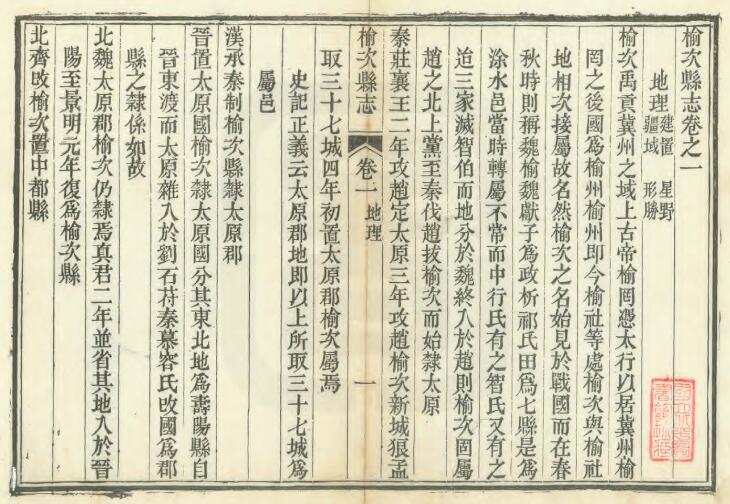 榆次縣志卷之一
地理 建置 星野
疆域 形勝
榆次禹貢冀州之域上古帝榆罔憑太行以居冀州榆
罔之後國爲榆州榆州卽今榆社等處榆次與榆社
地相次接屬故名然榆次之名始見於戰國而在春
秋時則稱魏榆魏獻子爲政析祁氏田爲七縣是爲
涂水邑當時轉屬不常而中行氏有之智氏又有之
迨三家滅智伯而地分於魏終入於趙則榆次固屬
趙之北上黨至秦伐趙拔榆次而始隸太原
秦莊襄王二年攻趙定太原三年攻趙榆次新城狼孟
榆次縣志
卷一 地理
一
取三十七城四年初置太原郡榆次屬焉
史記正義云太原郡地卽以上所取三十七城爲
屬邑
漢承秦制榆次縣隸太原郡
晉置太原國榆次隸太原國分其東北地爲壽陽縣自
晉東渡而太原雜入於劉石苻秦慕容氏改國爲郡
縣之隸係如故
北魏太原郡榆次仍隸焉真君二年並省其地入於晉
陽至景明元年復爲榆次縣
北齊改榆次置中都縣